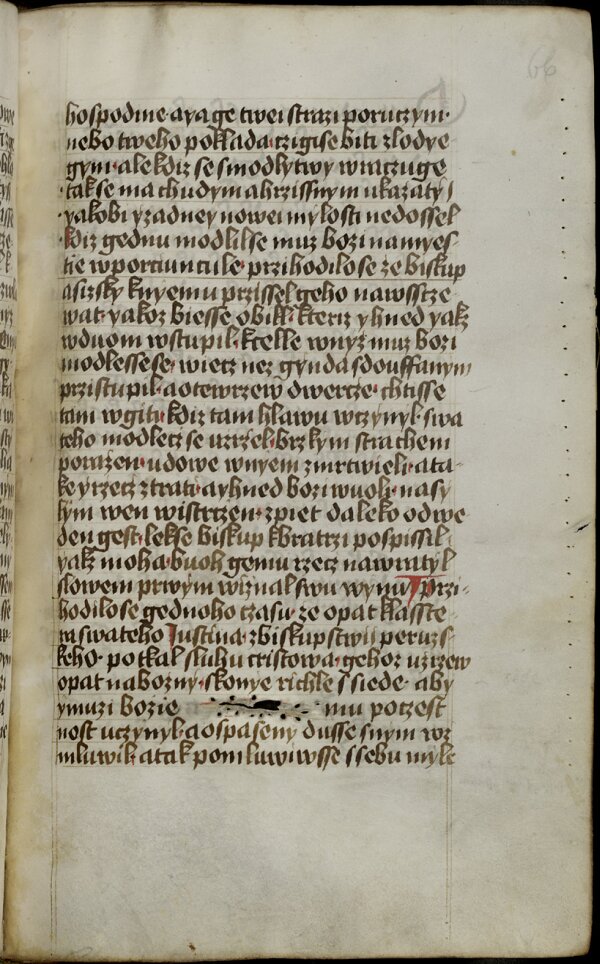 66
hospodine· a ya ge twei strazi poruczym·
nebo tweho poklada· czigise biti zlodye
gym· ale kdiz se s modlytwy wraczuge
tak se ma chudym a hrzissnym ukazaty/
yakobi y zadney nowei mylosti nedossel
kdiz gednu modlil se muz bozi na myes-
tie w porciuncule· przihodilo se ze biskup
asizsky k nyemu przissel geho nawsstze
wat· yakoz biesse obikl· kteriz y hned yakz
w duom wstupil· k celle w nyz muz bozi
modlesse se· wiecz nez gynda s douffanym
przistupil· a otewrzew dwercze· chtisse
tam w gity· kdiz tam hlawu wczynyl· swa
teho modlecz se uzrzel· brzkym strachem
porazen· udowe w nyem zmrtwieli· a ta-
ke y rzecz ztrati· a y hned bozi wuoli· nasy
lym wen wistrzen· zpiet daleko odwe
den gest· lekse biskup k bratrzi pospissil·
yakz moha· buoh gemu rzecz nawratyl
slowem prwym wiznal swu wynu· Przi-
hodilo se gednoho czasu· ze opat klasste-
ra swateho Justina· z biskupstwii peruzs-
keho· potkal sluhu cristowa· gehoz uzrzew
opat nabozny· s konye richle ssiede· aby
y muzi bozie mu poczest
nost uczynyl· a o spaseny dusse s nym wz
mluwil· a tak pomiluwiwsse s sebu myle